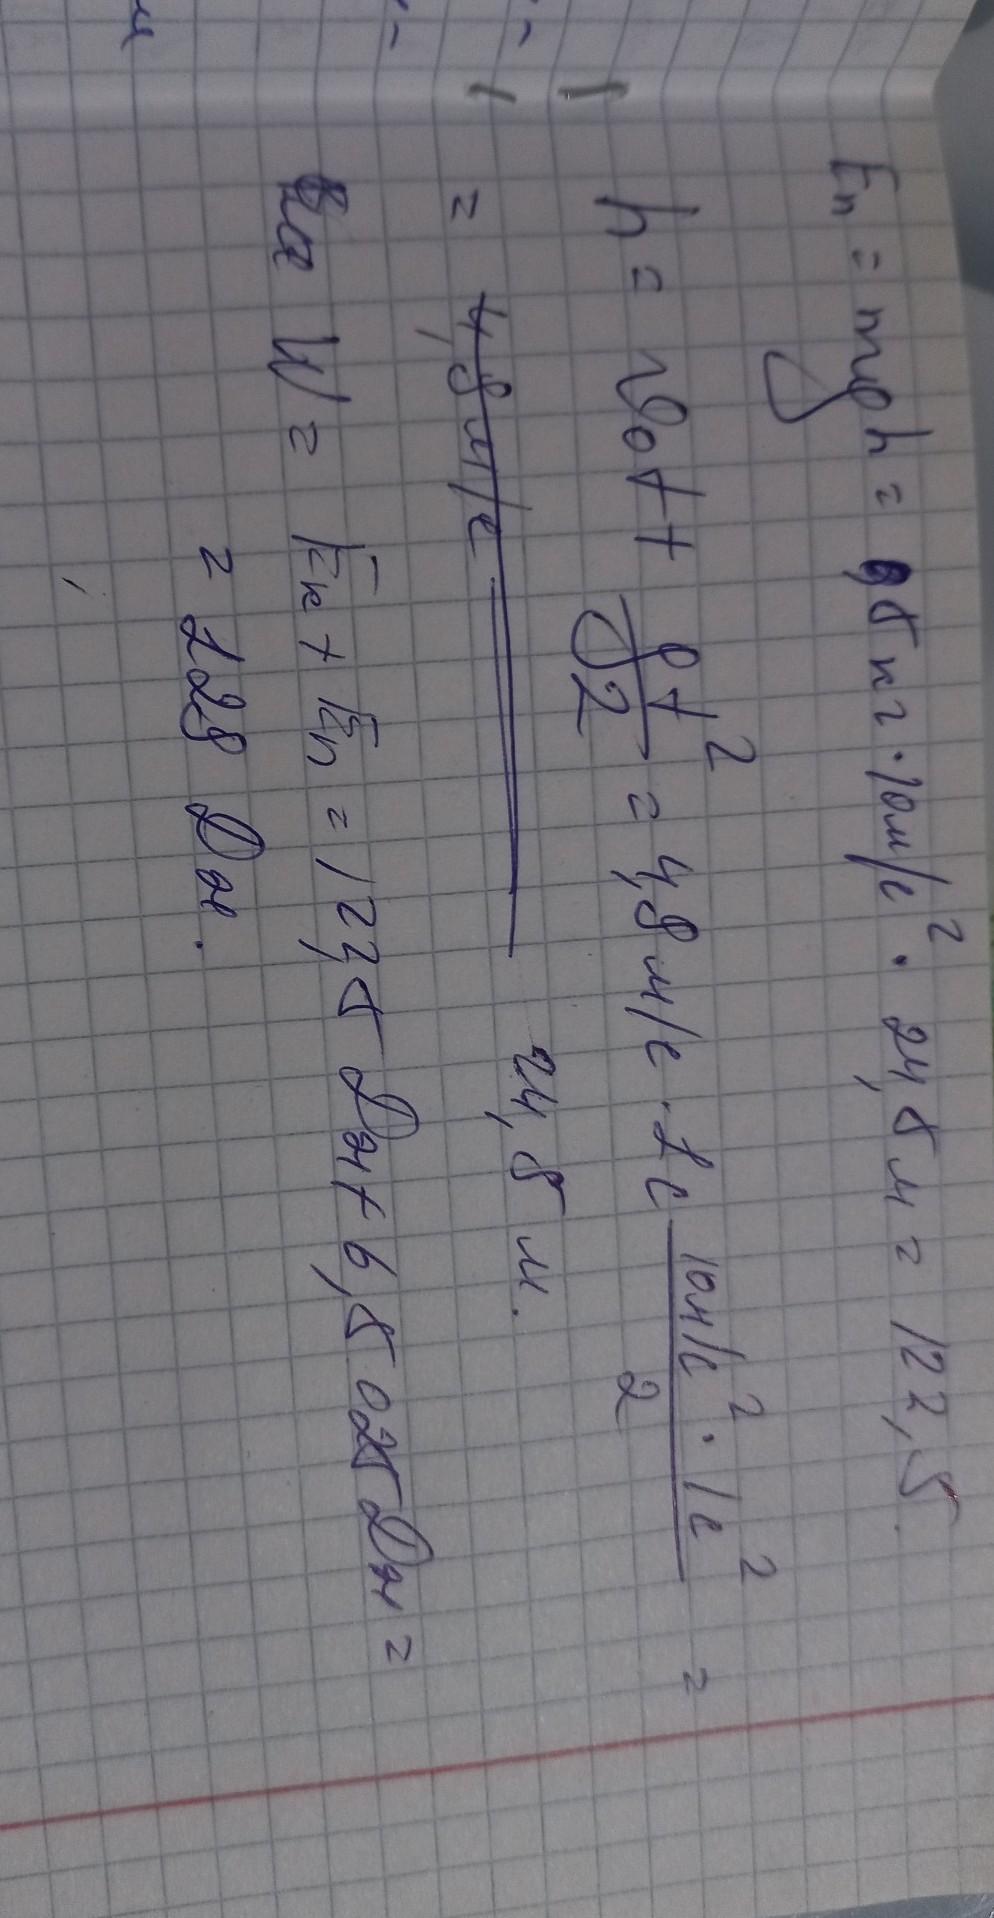 Eп = mgh = 0,5 кг · 10 м/с² · 24,5 м = 122,5.
h = v₀t + gt²/2 = 4,9 м/с · 1с 10м/с² · 1с²/2 =
= 4,9 м/с 24,5 м.
W = Eк + Eп = 122,5 Дж + 6,5 025 Дж =
= 129 Дж.